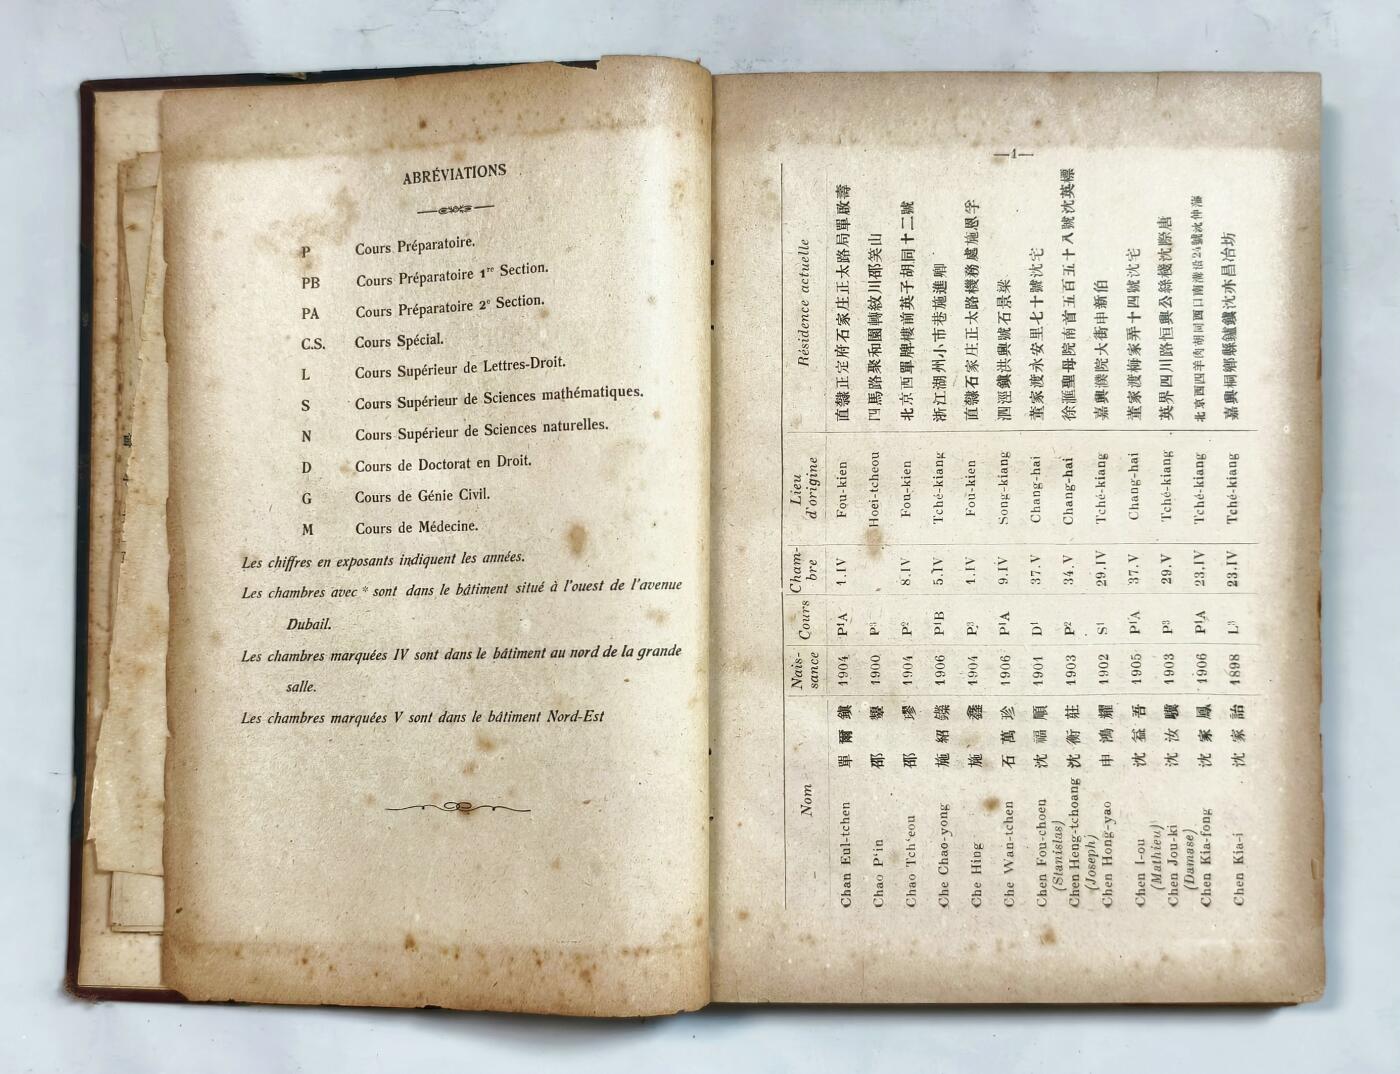 ABRÉVIATIONS
P Cours Préparatoire.
PB Cours Préparatoire 1re Section.
PA Cours Préparatoire 2e Section.
C.S. Cours Spécial.
L Cours Supérieur de Lettres-Droit.
S Cours Supérieur de Sciences mathématiques.
N Cours Supérieur de Sciences naturelles.
D Cours de Doctorat en Droit.
G Cours de Génie Civil.
M Cours de Médecine.
Les chiffres en exposants indiquent les années.
Les chambres avec * sont dans le bâtiment situé à l'ouest de l'avenue
Dubail.
Les chambres marquées IV sont dans le bâtiment au nord de la grande
salle.
Les chambres marquées V sont dans le bâtiment Nord-Est
—1—
Nom Nais-sance Cours Cham-bre Lieu d'origine Résidence actuelle
Chan Eul-tchen 單爾鎭 1904 P¹A 1.IV Fou-kien 直隸正定府石家庄正太路局單啟壽
Chao P'in 邵 1900 P³ Hoei-tcheou 四馬路聚和園轉紋川邵笑山
Chao Tch'eou 邵璆 1904 P² 8.IV Fou-kien 北京西單牌樓前英子胡同十二號
Che Chao-yong 施紹 1906 P¹B 5.IV Tché-kiang 浙江湖州小市巷施進卿
Che Hing 施鑫 1904 P³ 1.IV Fou-kien 直隸石家庄正太路機務處施恩孚
Che Wan-tchen 石萬珍 1906 P¹A 9.IV Song-kiang 泗涇鎭洪興號石景梁
Chen Fou-choen 沈福順 1901 D¹ 37.V Chang-hai 董家渡永安里七十號沈宅
(Stanislas)
Chen Heng-tchoang 沈衡莊 1903 P² 34.V Chang-hai 徐滙聖母院南首五百五十八號沈英標
(Joseph)
Chen Hong-yao 申鴻耀 1902 S¹ 29.IV Tché-kiang 嘉興濮院大街申新伯
Chen I-ou 沈益吾 1905 P¹A 37.V Chang-hai 董家渡梅家弄十四號沈宅
(Mathieu)
Chen Jou-ki 沈汝驥 1903 P³ 29.V Tché-kiang 英界四川路恒興公絲棧沈際唐
(Damase)
Chen Kia-fong 沈家鳳 1906 P¹A 23.IV Tché-kiang 北京西四羊肉胡同西口南溝沿24號沈仲
Chen Kia-i 沈家詒 1898 L³ 23.IV Tché-kiang 嘉興桐鄉縣鑪鎭沈亦昌冶坊